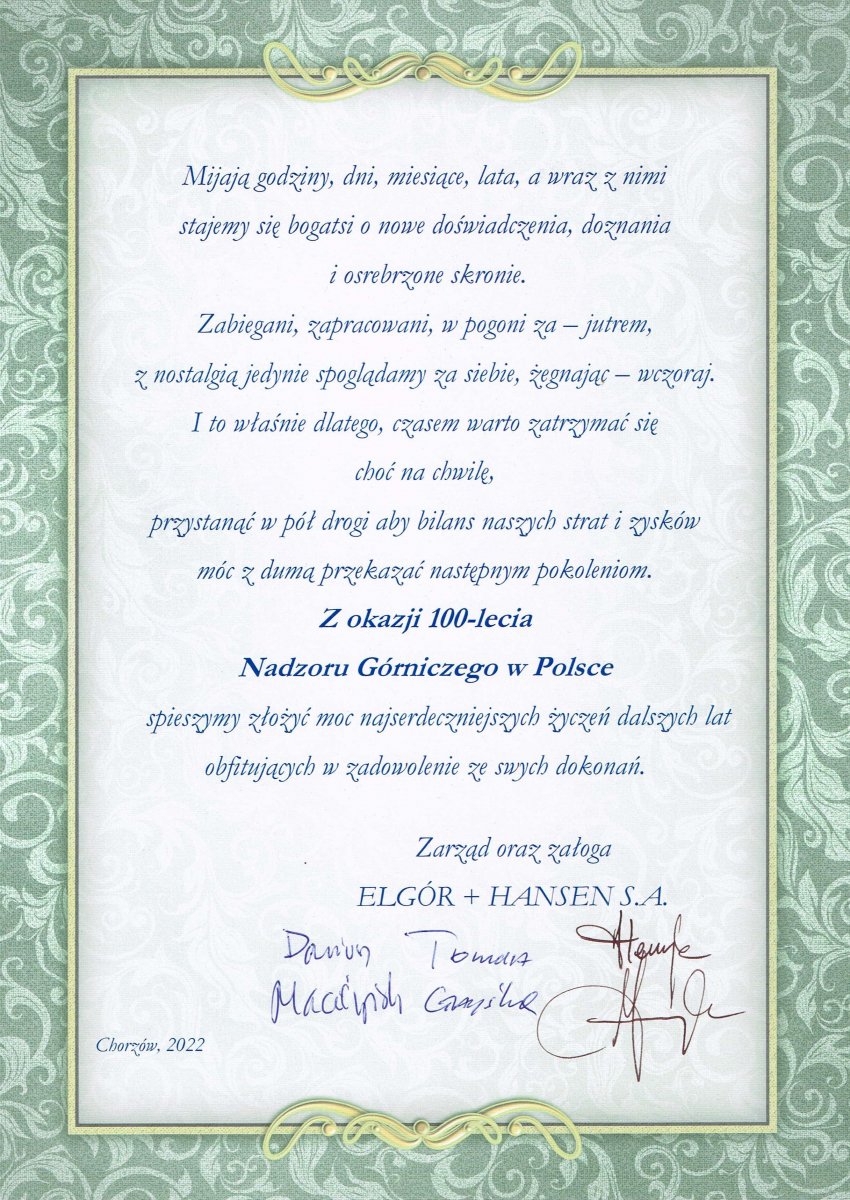 Mijają godziny, dni, miesiące, lata, a wraz z nimi
stajemy się bogatsi o nowe doświadczenia, doznania
i osrebrzone skronie.
Zabiegani, zapracowani, w pogoni za – jutrem,
z nostalgią jedynie spoglądamy za siebie, żegnając – wczoraj.
I to właśnie dlatego, czasem warto zatrzymać się
choć na chwilę,
przystanąć w pół drogi aby bilans naszych strat i zysków
móc z dumą przekazać następnym pokoleniom.
Z okazji 100-lecia
Nadzoru Górniczego w Polsce
spieszymy złożyć moc najserdeczniejszych życzeń dalszych lat
obfitujących w zadowolenie ze swych dokonań.
Zarząd oraz załoga
ELGÓR + HANSEN S.A.
Tomasz
Chorzów, 2022